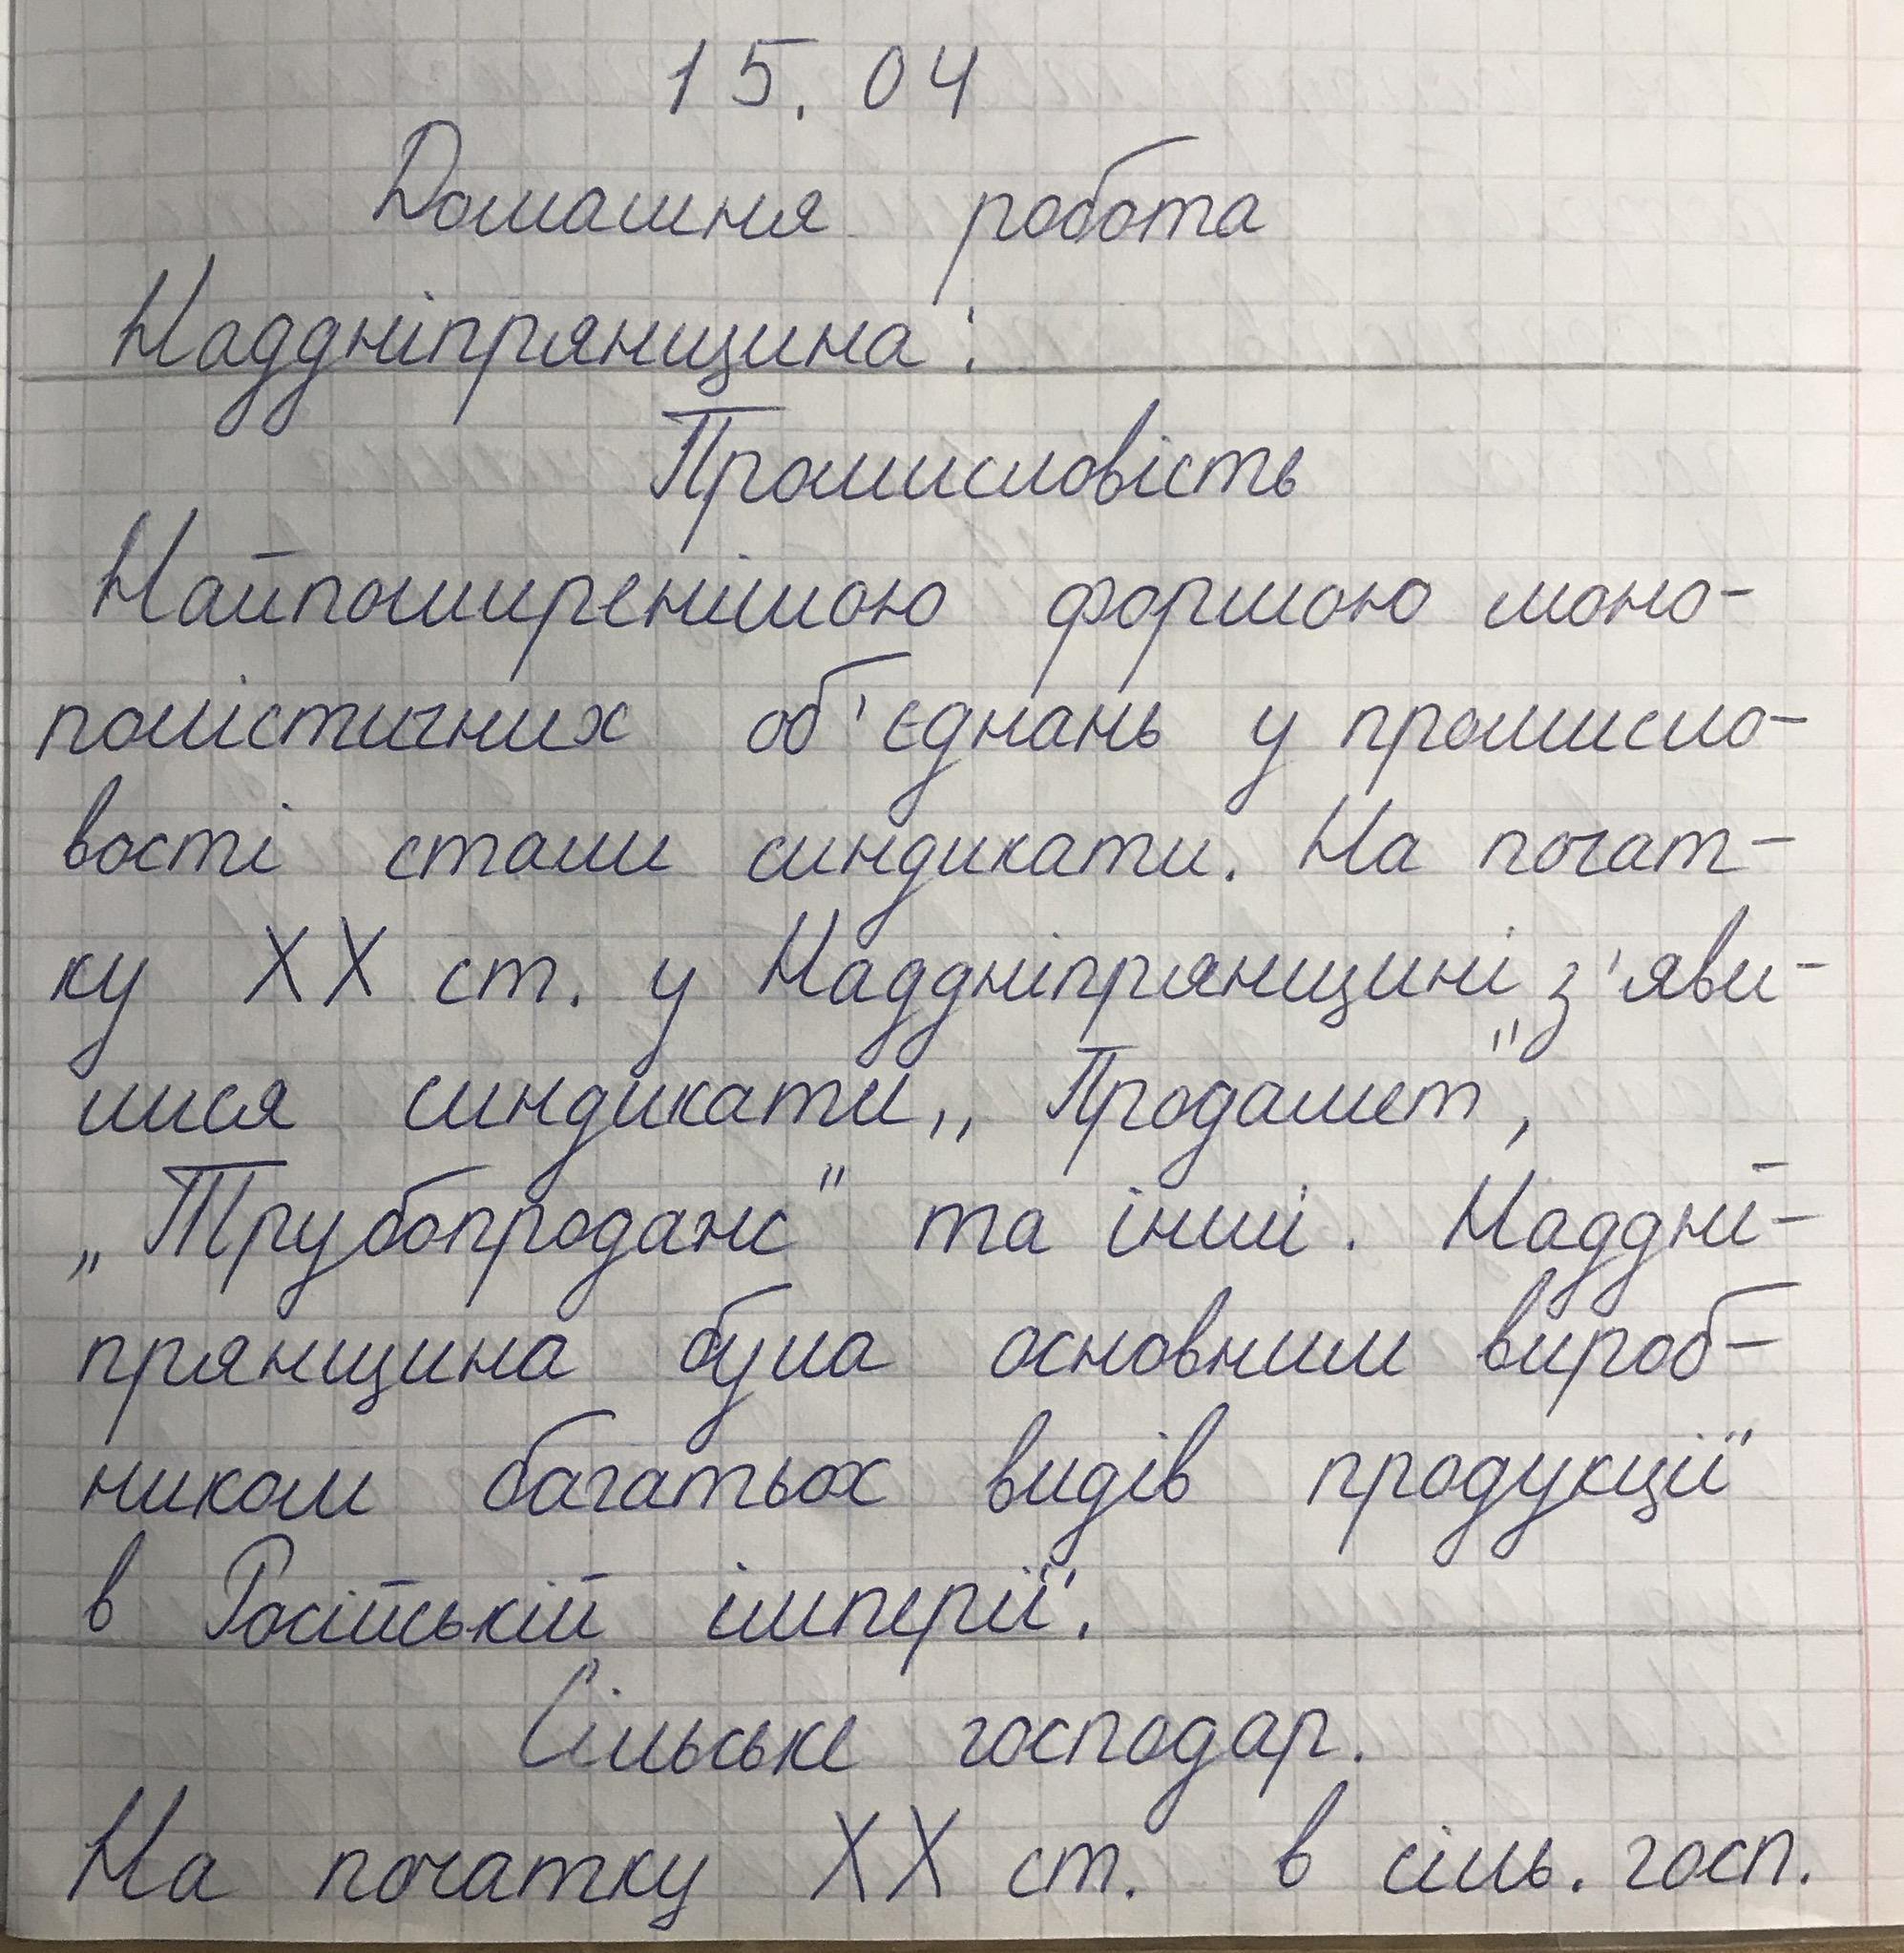 15.04
Домашня робота
Наддніпрянщина:
Промисловість
Найпоширенішою формою моно-
полістичних об'єднань у промисло-
вості стали синдикати. На почат-
ку ХХ ст. у Наддніпрянщині з'яви-
лися синдикати „ Продамет",
„Трубопроданс" та інші. Наддні-
прянщина була основним вироб-
ником багатьох видів продукції
в Російській імперії.
Сільське господар.
На початку ХХ ст. в сіль. госп.